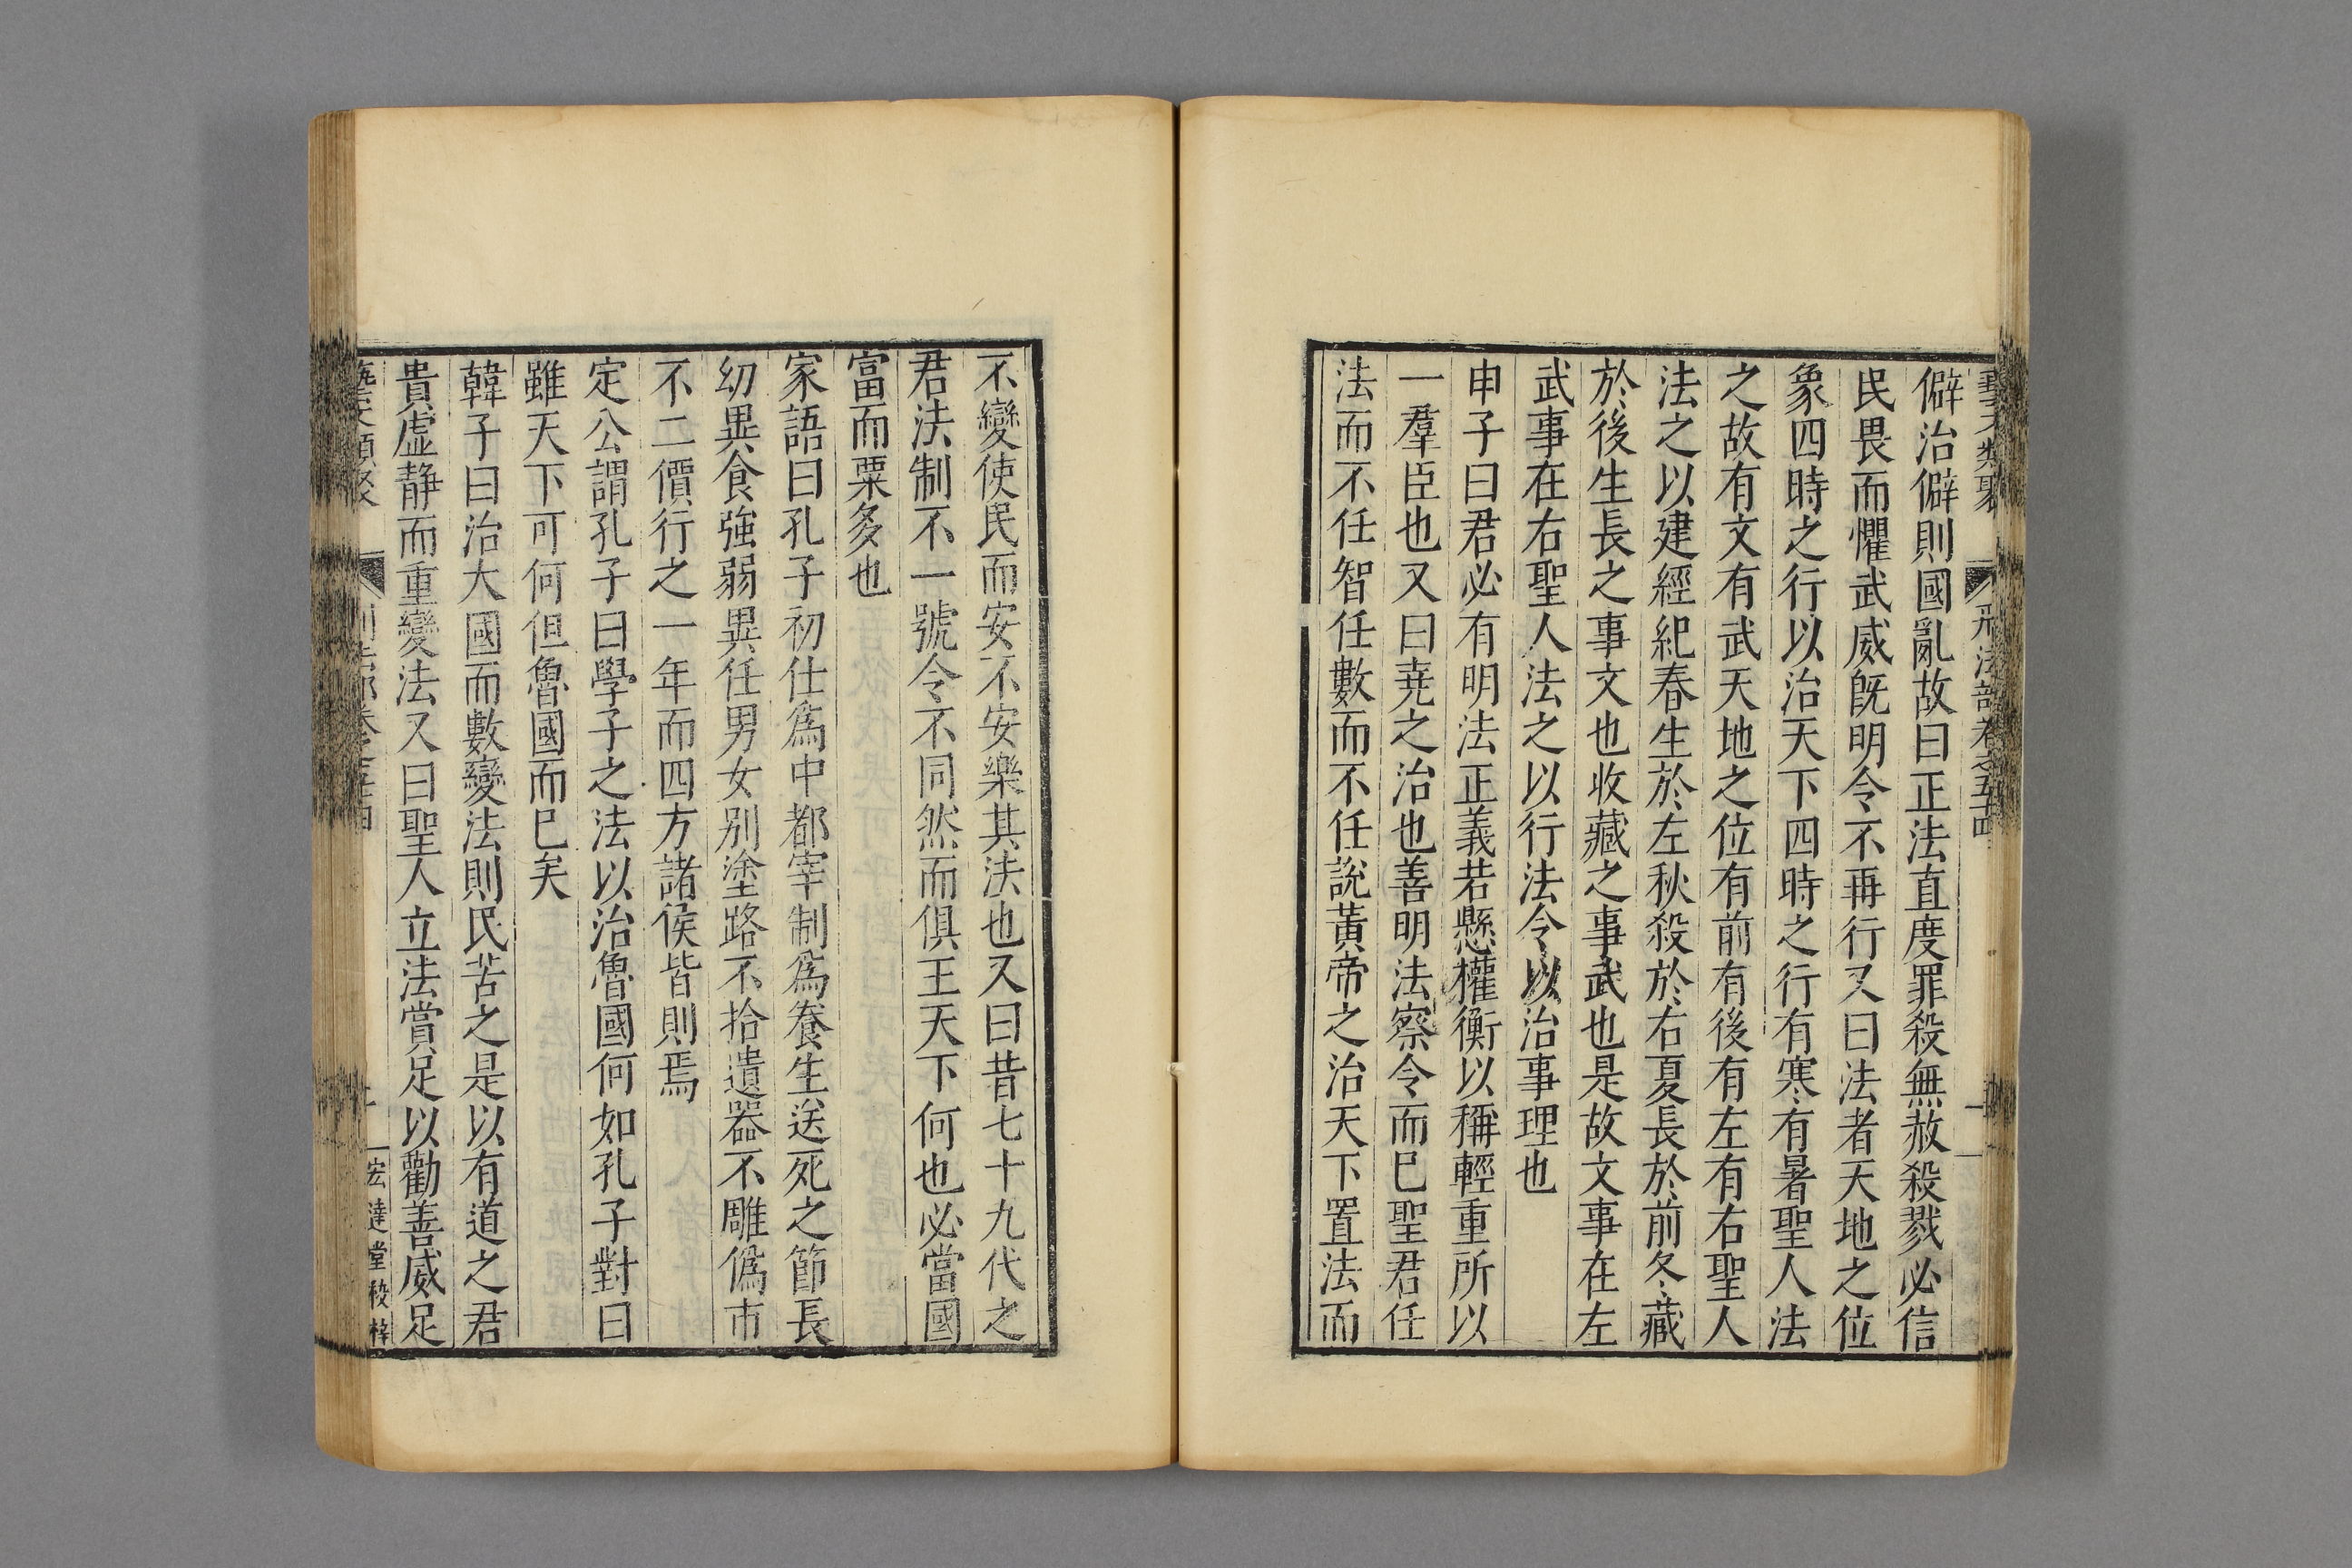 藝文類聚 刑法部卷之五十四
僻治僻則國亂故曰正法直度罪殺無赦殺戮必信
民畏而懼武威旣明令不再行又曰法者天地之位
象四時之行以治天下四時之行有寒有暑聖人法
之故有文有武天地之位有前有後有左有右聖人
法之以建經紀春生於左秋殺於右夏長於前冬藏
於後生長之事文也收藏之事武也是故文事在左
武事在右聖人法之以行法令以治事理也
申子曰君必有明法正義若懸權衡以稱輕重所以
一羣臣也又曰堯之治也善明法察令而巳聖君任
法而不任智任數而不任說黃帝之治天下置法而
不變使民而安不安樂其法也又曰昔七十九代之
君法制不一號令不同然而俱王天下何也必當國
富而粟多也
家語曰孔子初仕爲中都宰制爲養生送死之節長
幼異食強弱異任男女别塗路不拾遺器不雕僞市
不二價行之一年而四方諸侯皆則焉
定公謂孔子曰學子之法以治魯國何如孔子對曰
雖天下可何但魯國而巳矣
韓子曰治大國而數變法則民苦之是以有道之君
貴虛静而重變法又曰聖人立法賞足以勸善威足
藝文類聚 刑法部卷之五十四 宏達堂校梓